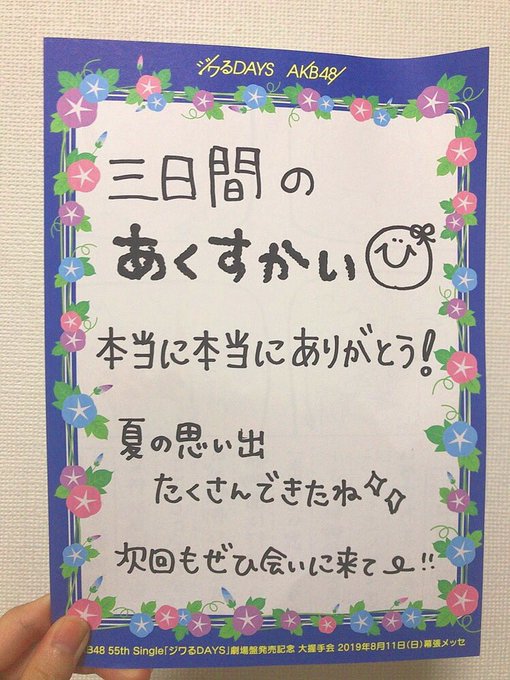 ジワるDAYS AKB48
三日間の
あくすかい
本当に本当にありがとう!
夏の思い出
たくさんできたね
次回もぜひ会いに来て!!
B48 55th Single「ジワるDAYS」劇場盤発売記念 大握手会 2019年8月11日(日)幕張メッセ